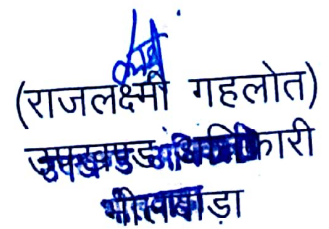 (राजलक्ष्मी गहलोत)
उपखण्ड अधिकारी
भीलवाड़ा